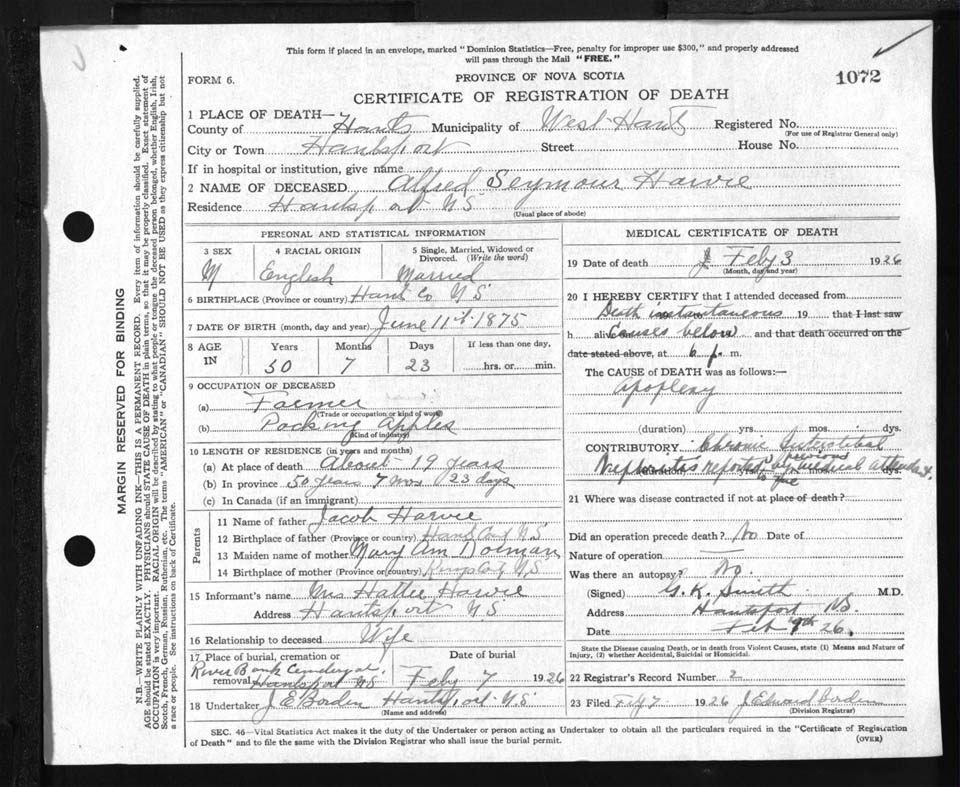 This form if placed in an envelope, marked "Dominion Statistics—Free, penalty for improper use $300," and properly addressed
will pass through the Mail "FREE."
FORM 6.
PROVINCE OF NOVA SCOTIA
1072
CERTIFICATE OF REGISTRATION OF DEATH
MARGIN RESERVED FOR BINDING
N.B.—WRITE PLAINLY WITH UNFADING INK—THIS IS A PERMANENT RECORD. Every item of information should be carefully supplied.
AGE should be stated EXACTLY. PHYSICIANS should STATE CAUSE OF DEATH in plain terms, so that it may be properly classified. Exact statement of
OCCUPATION is very important. RACIAL ORIGIN will be described by stating to what people or tongue the deceased person belonged, whether English, Irish,
Scotch, French, German, Russian, Ruthenian, etc. The terms "AMERICAN" or "CANADIAN" SHOULD NOT BE USED as they express citizenship but not
a race or people. See instructions on back of Certificate.
1 PLACE OF DEATH—
County of Hants Municipality of West Hants Registered No.
(For use of Registrar General only)
City or Town Hantsport Street House No.
If in hospital or institution, give name
2 NAME OF DECEASED Alfred Seymour Harvie
Residence Hantsport N.S.
(Usual place of abode)
PERSONAL AND STATISTICAL INFORMATION
3 SEX 4 RACIAL ORIGIN 5 Single, Married, Widowed or
Divorced. (Write the word)
M English Married
6 BIRTHPLACE (Province or country) Hants Co N S
7 DATE OF BIRTH (month, day and year) June 11th 1875
8 AGE Years Months Days If less than one day,
IN 50 7 23 hrs. or min.
9 OCCUPATION OF DECEASED
(a) Farmer
(Trade or occupation or kind of work)
(b) Packing Apples
(Kind of industry)
10 LENGTH OF RESIDENCE (in years and months)
(a) At place of death About 19 years
(b) In province 50 years 7 mos 23 days
(c) In Canada (if an immigrant)
Parents
11 Name of father Jacob Harvie
12 Birthplace of father (Province or country) Hants Co N.S.
13 Maiden name of mother Mary Ann Dorman
14 Birthplace of mother (Province or country) Kings Co N S
15 Informant's name Mrs Hattie Harvie
Address Hantsport N.S.
16 Relationship to deceased Wife
17 Place of burial, cremation or Date of burial
River Bank
removal Hantsport N S Feby 7 1926
18 Undertaker J E Borden Hantsport N S
(Name and address)
MEDICAL CERTIFICATE OF DEATH
19 Date of death Feby 3 1926
(Month, day and year)
20 I HEREBY CERTIFY that I attended deceased from
Death instantaneous 19 that I last saw
h alive Causes below and that death occurred on the
date stated above, at 6 p. m.
The CAUSE of DEATH was as follows:—
Apoplexy
(duration) yrs. mos. dys.
CONTRIBUTORY Chronic Interstitial
Nephritis reported by previous medical attendant
to me
21 Where was disease contracted if not at place of death?
Did an operation precede death? No Date of
Nature of operation
Was there an autopsy? No.
(Signed) G. K. Smith M.D.
Address Hantsport N.S.
Date Feb 9th 26.
State the Disease causing Death, or in death from Violent Causes, state (1) Means and Nature of
Injury, (2) whether Accidental, Suicidal or Homicidal.
22 Registrar's Record Number 2
23 Filed Feby 7 1926 J Edward Borden
(Division Registrar)
SEC. 46—Vital Statistics Act makes it the duty of the Undertaker or person acting as Undertaker to obtain all the particulars required in the "Certificate of Registration
of Death" and to file the same with the Division Registrar who shall issue the burial permit.
(OVER)